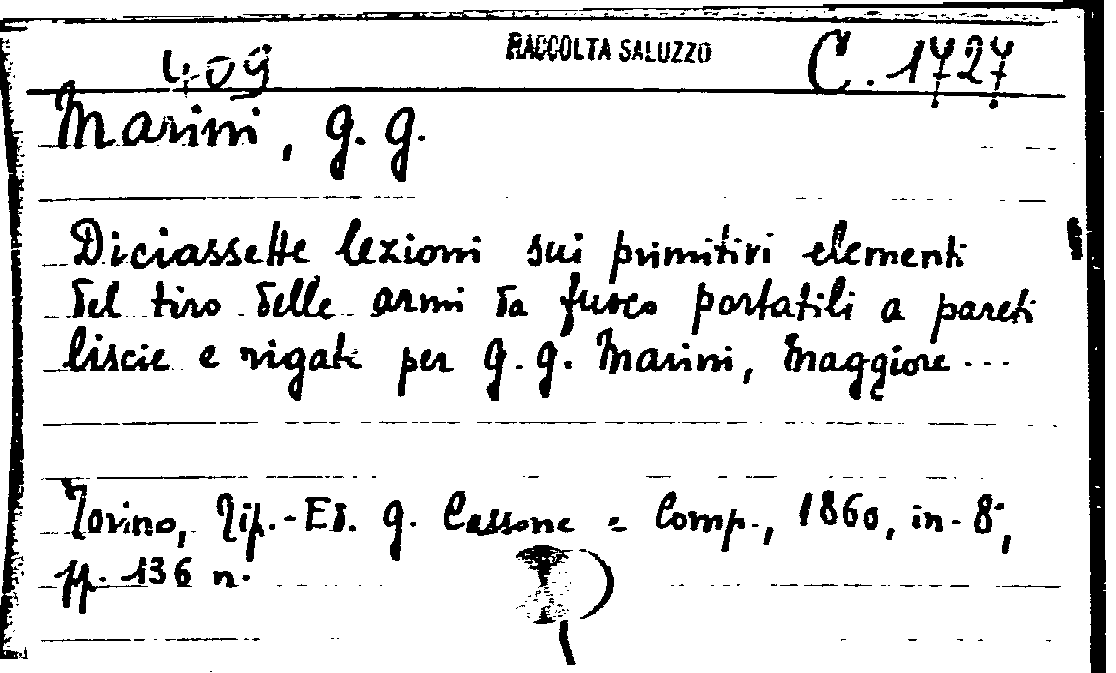 409 RACCOLTA SALUZZO C. 1727
Marini, G. G.
Diciassette lezioni sui primitivi elementi
del tiro delle armi da fuoco portatili a pareti
liscie e rigate per G. G. Marini, Maggiore ...
Torino, Tip.-Ed. G. Cassone e Comp., 1860, in-8°,
pp. 136 n.